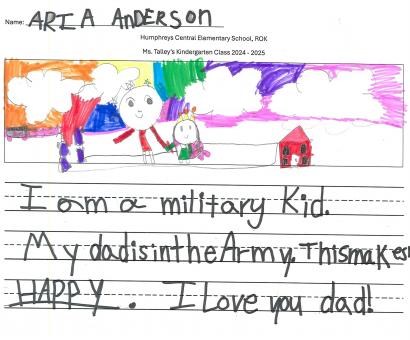 Name: ARIA ANDERSON
Humphreys Central Elementary School, ROK
Ms. Talley's Kindergarten Class 2024 - 2025
I am a military Kid.
My dad is in the Army. This makes
HAPPY. I Love you dad!